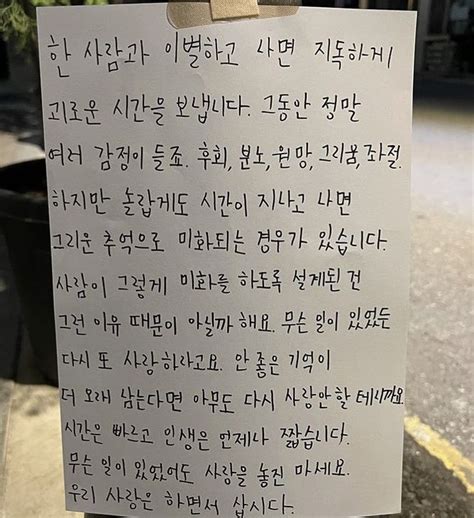 한 사람과 이별하고 나면 지독하게
괴로운 시간을 보냅니다. 그동안 정말
여러 감정이 들죠. 후회, 분노, 원망, 그리움, 좌절.
하지만 놀랍게도 시간이 지나고 나면
그리운 추억으로 미화되는 경우가 있습니다.
사람이 그렇게 미화를 하도록 설계된 건
그런 이유 때문이 아닐까 해요. 무슨 일이 있었든
다시 또 사랑하라고요. 안 좋은 기억이
더 오래 남는다면 아무도 다시 사랑 안 할 테니까요.
시간은 빠르고 인생은 언제나 짧습니다.
무슨 일이 있었어도 사랑을 놓진 마세요.
우리 사랑은 하면서 삽시다.